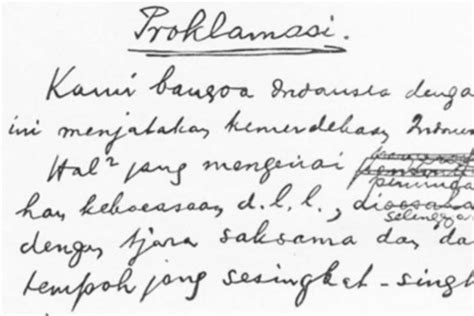 Proklamasi.
Kami bangsa Indonesia denga
ini menjatakan kemerdekaan Indones
Hal² jang mengenai
peminda
han kekoeasaan d.l.l.,
selenggar
dengan tjara saksama dan da
tempoh jang sesingkat-singk